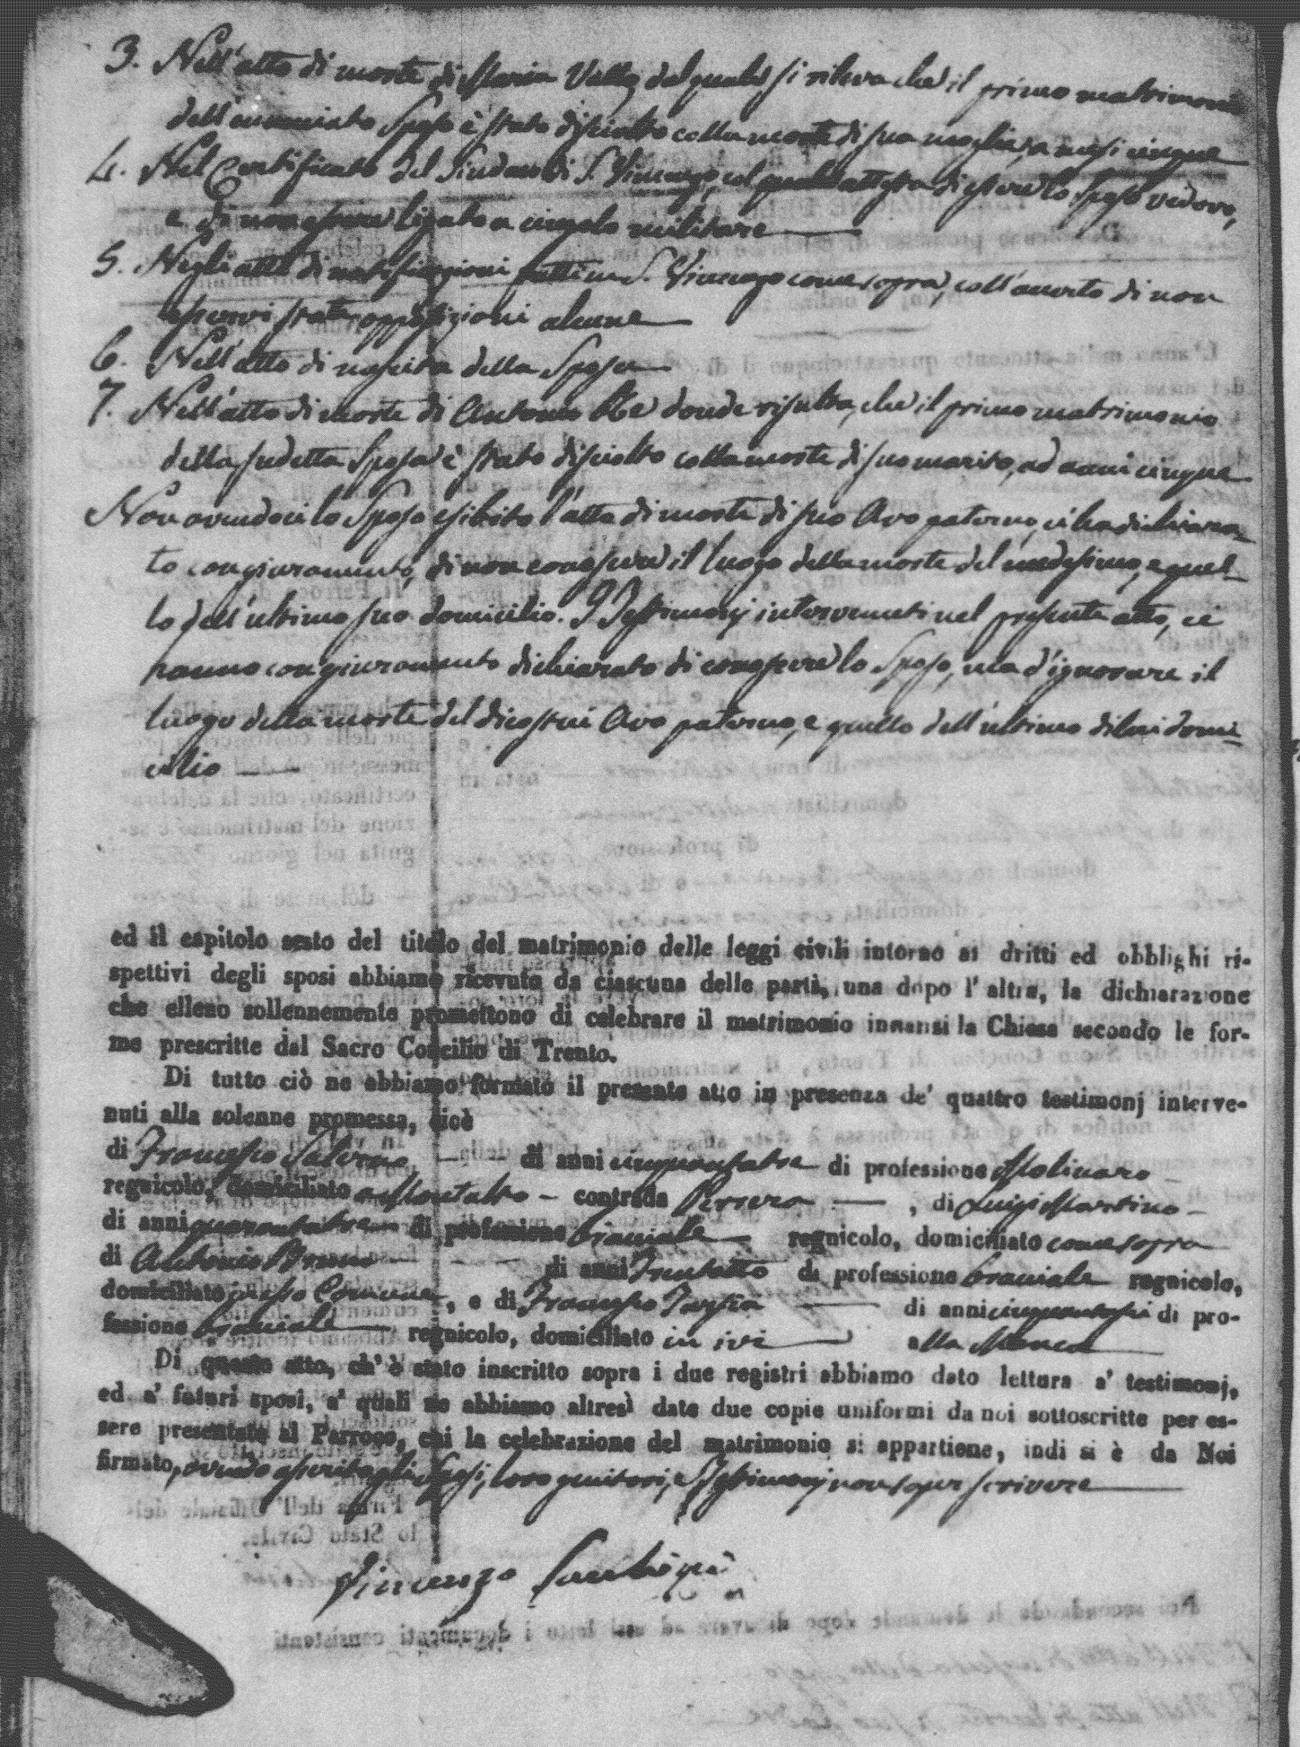 3. Nell'atto di morte di Maria Villa, dal quale si rileva che il primo matrimonio
dell'enunciato Sposo è stato disciolto colla morte di sua moglie, a mesi cinque
4. Nel Certificato del Sindaco di S. Vincenzo, col quale attesta di essere lo Sposo vedovo,
e di non essere ligato a cingolo militare
5. Negli atti di notificazioni fatti in S. Vincenzo come sopra, coll'averto di non
esservi state opposizioni alcune
6. Nell'atto di nascita della Sposa
7. Nell'atto di morte di Antonio Re donde risulta, che il primo matrimonio
della sudetta Sposa è stato disciolto colla morte di suo marito, ad anni cinque
Non avendoci lo Sposo esibito l'atto di morte di suo Avo paterno, ci ha dichiara=
to con giuramento, di non conoscere il luogo della morte del medesimo, e quel=
lo dell'ultimo suo domicilio. I Testimonj intervenuti nel presente atto, ce
hanno con giuramento dichiarato di conoscere lo Sposo, ma d'ignorare il
luogo della morte del dicostui Avo paterno, e quello dell'ultimo di lui domi=
cilio
ed il capitolo sesto del titolo del matrimonio delle leggi civili intorno ai dritti ed obblighi ri-
spettivi degli sposi abbiamo ricevuto da ciascuna delle parti, una dopo l'altra, la dichiarazione
che elleno sollennemente promettono di celebrare il matrimonio innanzi la Chiesa secondo le for-
me prescritte dal Sacro Concilio di Trento.
Di tutto ciò ne abbiamo formato il presente atto in presenza de' quattro testimonj interve-
nuti alla solenne promessa, cioè
di Francesco Salerno di anni cinquantatre di professione Molinaro
regnicolo, domiciliato a Montalto contrada , di Luigi Martino
di anni quarantatre di professione braciale regnicolo, domiciliato come sopra
di Antonio Bruno di anni trentotto di professione braciale regnicolo,
domiciliato presso Comune, e di Francesco di anni cinquantasei di pro-
fessione braciale regnicolo, domiciliato in ivi alla Manca
Di questo atto, ch'è stato inscritto sopra i due registri abbiamo dato lettura a' testimonj,
ed a' futuri sposi, a' quali ne abbiamo altresì date due copie uniformi da noi sottoscritte per es-
sere presentate al Parroco, cui la celebrazione del matrimonio si appartiene, indi si è da Noi
firmato, avendo asserito gli Sposi, loro genitori, e Testimonj non saper scrivere
Vincenzo